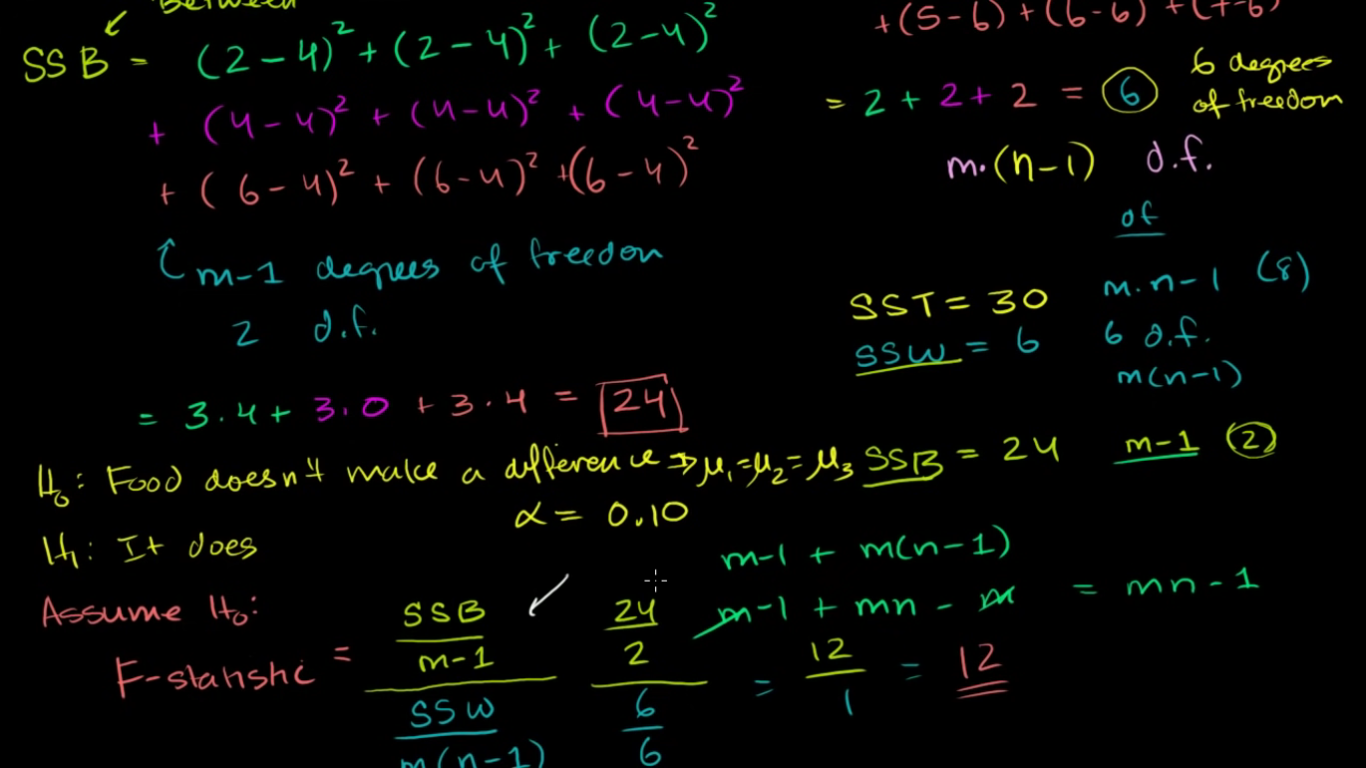 Between
SSB = (2-4)² + (2-4)² + (2-4)²
+ (4-4)² + (4-4)² + (4-4)²
+ (6-4)² + (6-4)² + (6-4)²
m-1 degrees of freedom
2 d.f.
= 3·4 + 3·0 + 3·4 = 24
+(5-6) + (6-6) + (7-6)
= 2 + 2 + 2 = 6
6 degrees
of freedom
m·(n-1) d.f.
df
SST = 30 m·n-1 (8)
SSW = 6 6 d.f.
m(n-1)
H₀: Food doesn't make a difference → μ₁=μ₂=μ₃ SSB = 24 m-1 2
α = 0.10
H₁: It does
m-1 + m(n-1)
m-1 + mn - m = mn-1
Assume H₀:
F-statistic = SSB / m-1 / SSW / m(n-1)
24 / 2 / 6 / 6 = 12 / 1 = 12